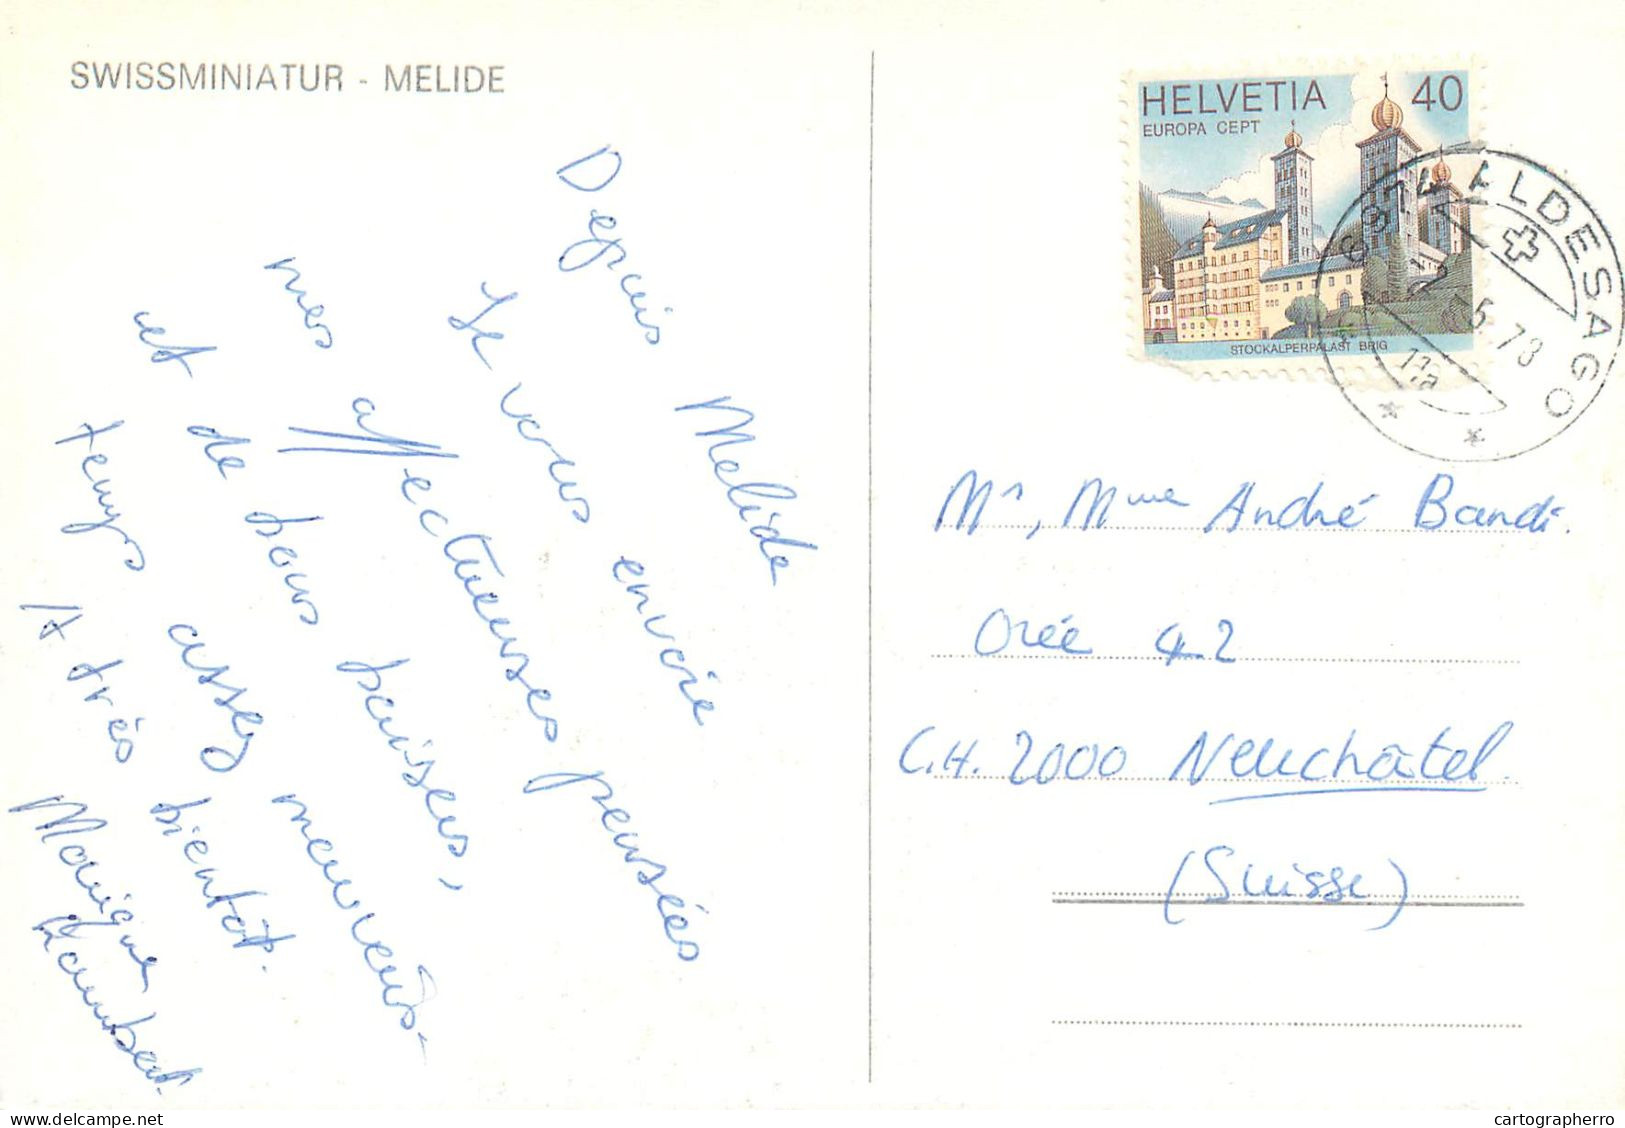 SWISSMINIATUR - MELIDE
Depuis Melide
Je vous envoie
mes affectueuses pensées
et de bons baisers,
temps assez
A très bientôt.
Monique
HELVETIA 40
EUROPA CEPT
STOCKALPERPALAST BRIG
6974 ALDESAGO
5.78
Mr, Mme André Bandi.
Orée 42
C.H. 2000 Neuchâtel.
(Suisse)
delcampe.net
cartographerro